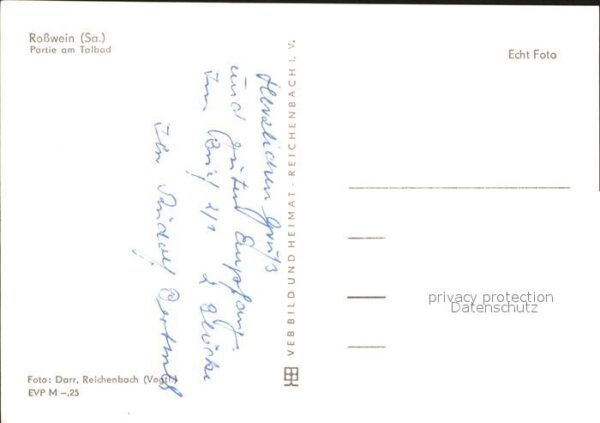 Roßwein (Sa.)
Partie am Talbad
Echt Foto
Herzlichen Gruß
und guten Empfang.
Im Brief 2/1 2 Blöcke
Ihr Rudolf
VEB BILD UND HEIMAT · REICHENBACH I. V.
privacy protection
Datenschutz
Foto: Darr, Reichenbach (Vogtl.)
EVP M –,25